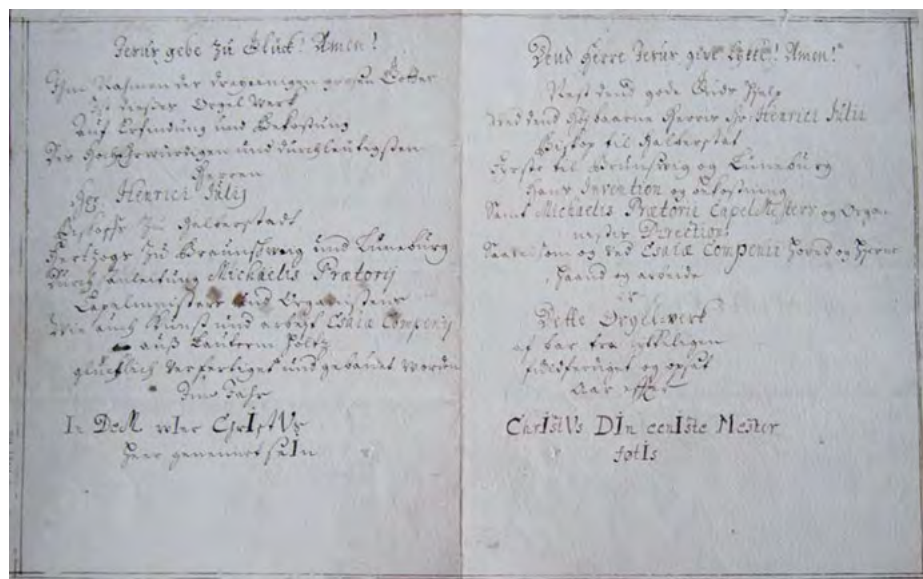 Jesus gebe zu Glück! Amen!
Ihm Nahmen der dreyeinigen großen Gottes
Ist dieses Orgel Werk
Auf Erfindung und Bekostung
Des Hochehrwürdigen und durchleutigsten
Herren
Henrici Julij
Bischoffs zu Halberstadt
Hertzogs zu Braunschweig und Lüneburg
Durch anleitung Michaelis Prætorij
Capelmeisters und Organistens
Wie auch Kunst und arbeyt Esaiæ Compenij
auß Lauterm Holtz
glücklich verfertiget und gebauet worden
Im Jahr
In DeM wIer ChrIstVs
Heer genennet seIn
Dend Herre Jesus give Lycke! Amen!
Nest dend gode Guds Hielp
Ved dend Høybaarne Herris Hr: Henrici Julii
Biskop til Halberstat
Første til Brunsvig og Lüneburg
Hans Invention og bekostning
Samt Michaelis Prætorii CapelMesters og Orga-
nistes Direction
Saavelsom og ved Esaiæ Compenii Hoved og Hierne
Haand og arbeide
er
Dette Orgelwerk
af bar træ lykkeligen
og opsat
Aar efter
ChrIstVs DIn eenIste Mester